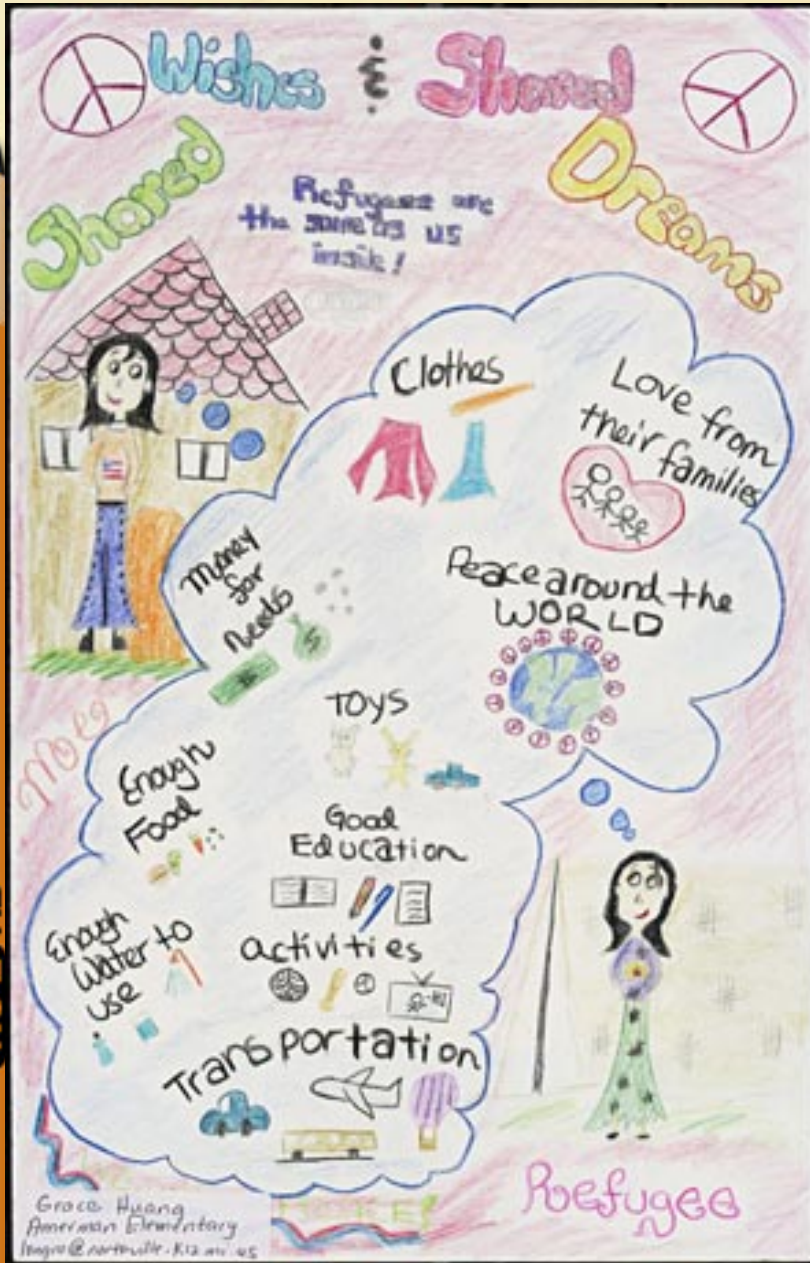 Wishes & Shared
Shared Dreams
Refugees are
the same as us
inside!
Clothes
Love from
their families
Money
for
needs
Peace around the
WORLD
Toys
Enough
Food
Good
Education
Enough
Water to
use
activities
Transportation
Refugee
Grace Huang
Amerman Elementary